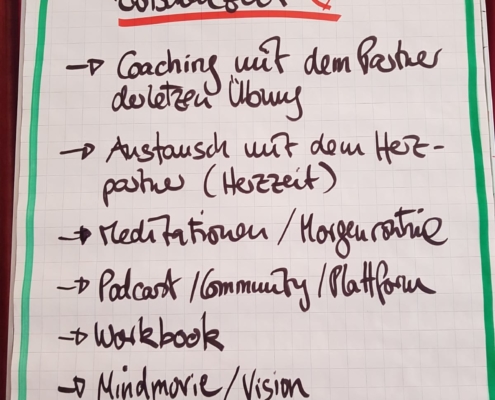 → Coaching mit dem Partner
der letzen Übung
→ Austausch mit dem Herz-
partner (Herzzeit)
→ Meditationen / Morgenroutine
→ Podcast / Community / Plattform
→ Workbook
→ Mindmovie / Vision